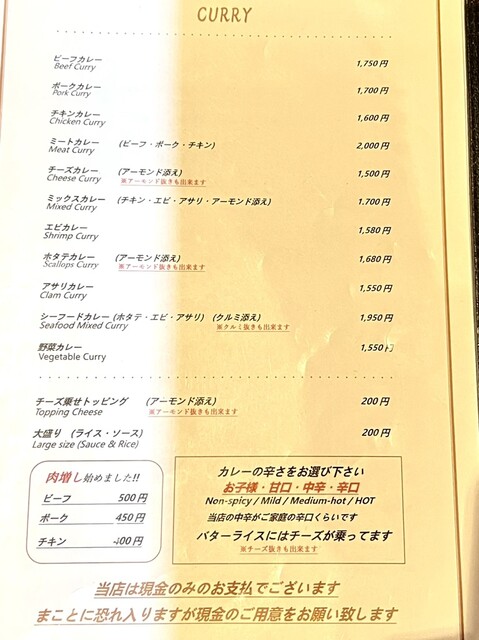 CURRY
ビーフカレー 1,750円
Beef Curry
ポークカレー 1,700円
Pork Curry
チキンカレー 1,600円
Chicken Curry
ミートカレー (ビーフ・ポーク・チキン) 2,000円
Meat Curry
チーズカレー (アーモンド添え) 1,500円
Cheese Curry ※アーモンド抜きも出来ます
ミックスカレー (チキン・エビ・アサリ・アーモンド添え) 1.700円
Mixed Curry
エビカレー 1,580円
Shrimp Curry
ホタテカレー (アーモンド添え) 1,680円
Scallops Curry ※アーモンド抜きも出来ます
アサリカレー 1,550円
Clam Curry
シーフードカレー (ホタテ・エビ・アサリ) (クルミ添え) 1,950円
Seafood Mixed Curry ※クルミ抜きも出来ます
野菜カレー 1,550円
Vegetable Curry
チーズ乗せトッピング (アーモンド添え) 200円
Topping Cheese ※アーモンド抜きも出来ます
大盛り (ライス・ソース) 200円
Large size (Sauce & Rice)
肉増し始めました!!
ビーフ 500円
ポーク 450円
チキン 400円
カレーの辛さをお選び下さい
お子様・甘口・中辛・辛口
Non-spicy / Mild / Medium-hot / HOT
当店の中辛がご家庭の辛口くらいです
バターライスにはチーズが乗ってます
※チーズ抜きも出来ます
当店は現金のみのお支払でございます
まことに恐れ入りますが現金のご用意をお願い致します